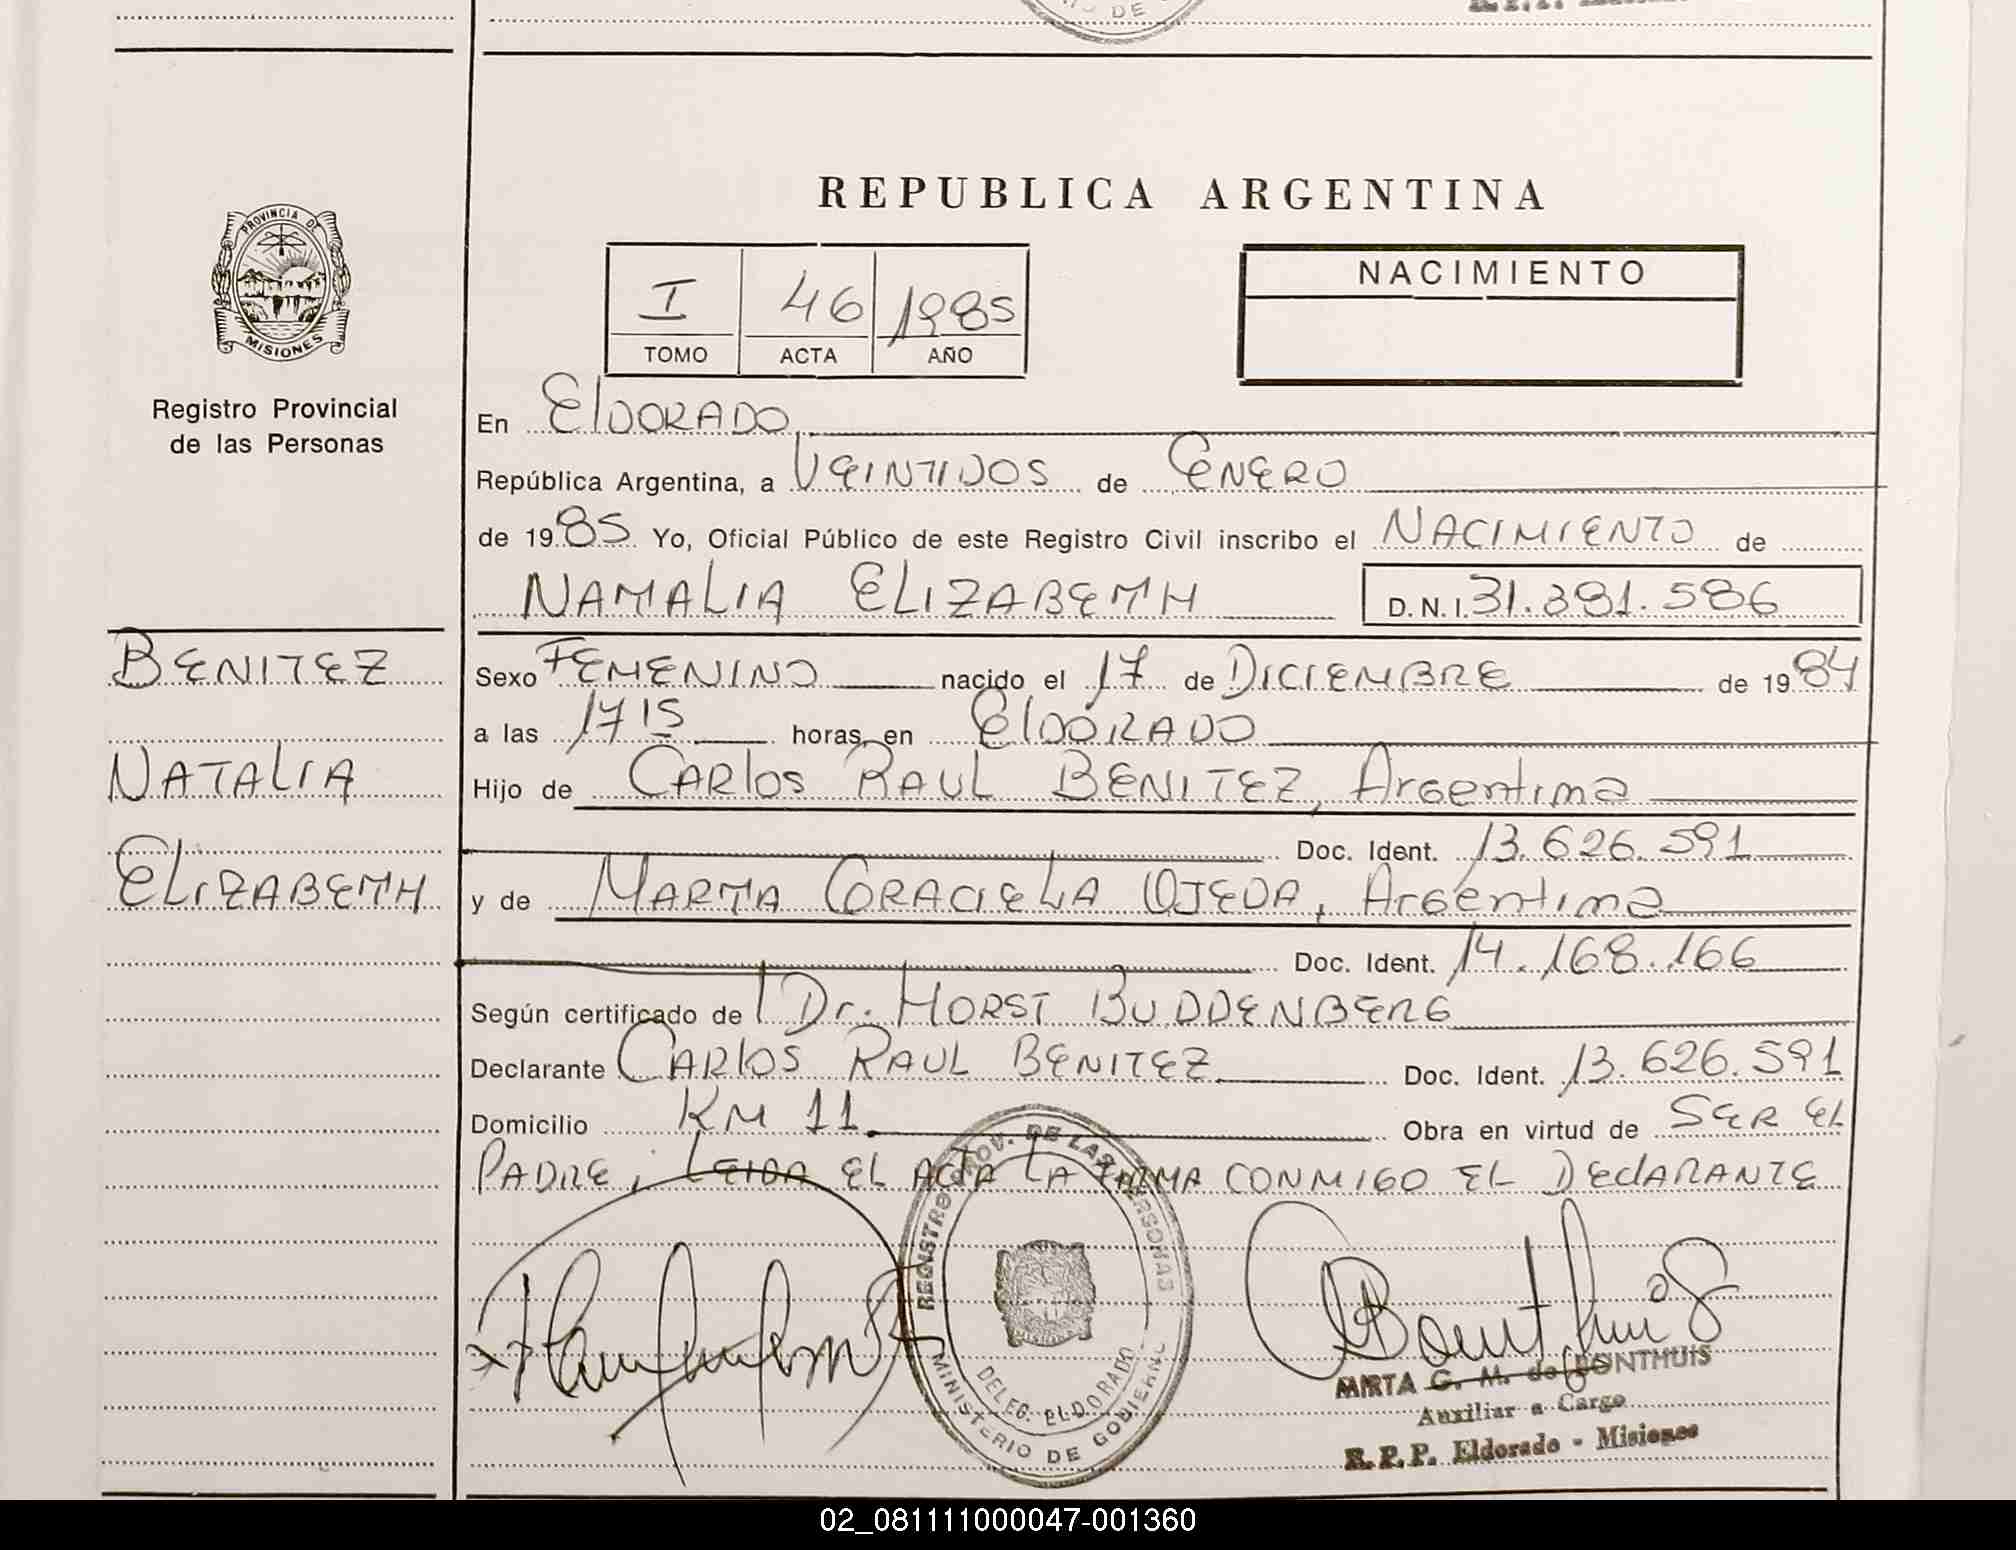 REPUBLICA ARGENTINA
PROVINCIA DE
MISIONES
Registro Provincial
de las Personas
I 46 1985
TOMO ACTA AÑO
NACIMIENTO
En ElDORADO
República Argentina, a VEINTIDOS de ENERO
de 1985 Yo, Oficial Público de este Registro Civil inscribo el NACIMIENTO de
NATALIA ELIZABETH D.N.I. 31.391.586
BENITEZ
NATALIA
ELIZABETH
Sexo FEMENINO nacido el 17 de DICIEMBRE de 1984
a las 17 15 horas en ElDORADO
Hijo de CARlOS RAUL BENITEZ, Argentina
Doc. Ident. 13.626.591
y de MARTA GRACIELA OJEDA, Argentina
Doc. Ident. 14.168.166
Según certificado de Dr. HORST BUDDENBERG
Declarante CARlOS RAUL BENITEZ Doc. Ident. 13.626.591
Domicilio KM 11 Obra en virtud de SER EL
PADRE, LEIDA EL ACTA LA FIRMA CONMIGO EL DEClARANTE
REGISTRO PROV. DE LAS PERSONAS
DELEG. ELDORADO
MINISTERIO DE GOBIERNO
MIRTA G. M. de BONTHUIS
Auxiliar a Cargo
R.P.P. Eldorado - Misiones
02_081111000047-001360